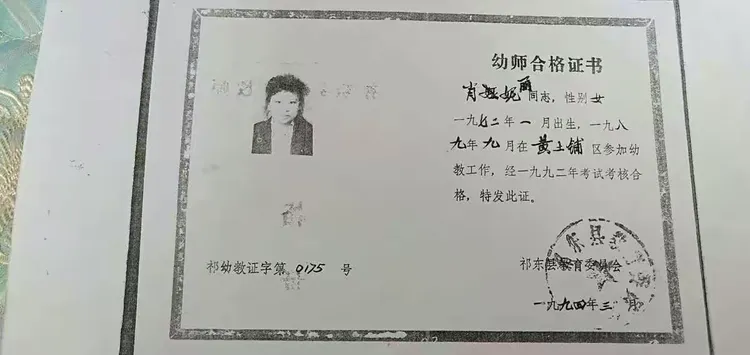 幼师合格证书
肖 妮丽同志，性别女
一九七二年一月出生，一九八
九年九月在黄土铺区参加幼
教工作，经一九九二年考试考核合
格，特发此证。
祁东县教育委员会
一九九四年三月
祁幼教证字第0175号